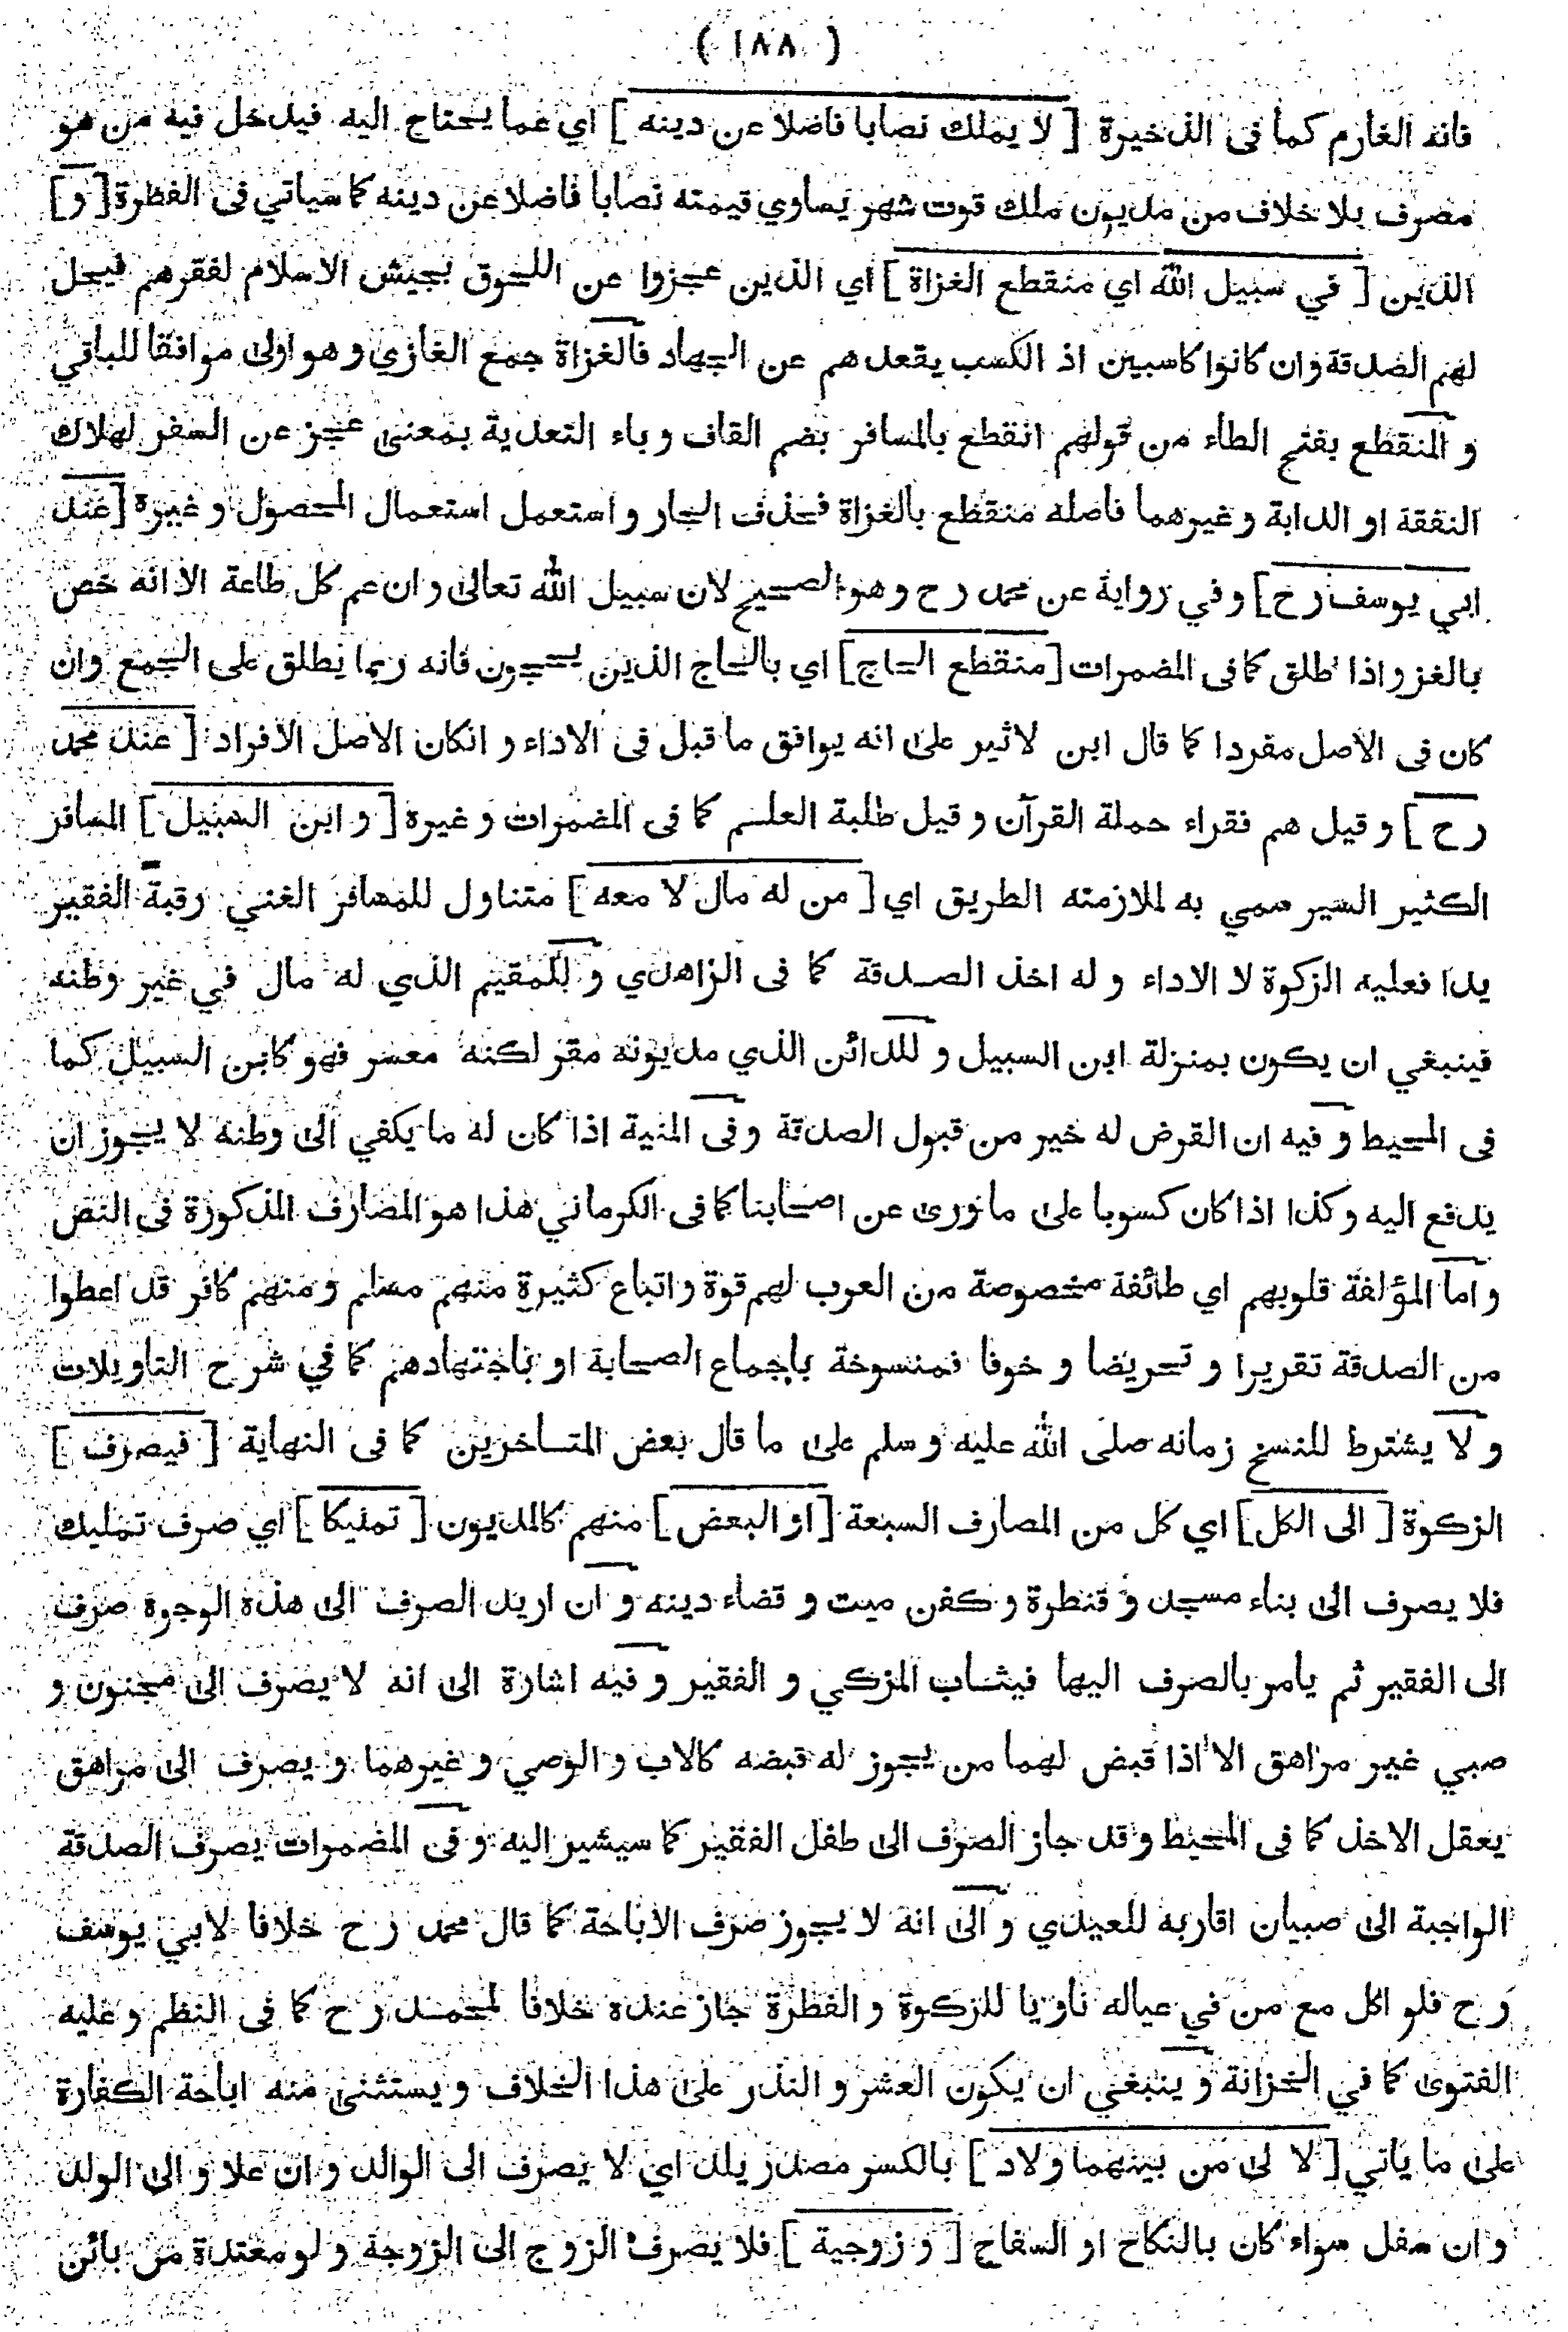 ( ١٨٨ )
فانه الغارم كما فى الذخيرة [ لا يملك نصابا فاضلا عن دينه ] اي عما يحتاج اليه فيدخل فيه من هو
مصرف بلا خلاف من مديون ملك قوت شهر يساوي قيمته نصابا فاضلا عن دينه كما سياتي فى الفطرة [ و ]
الذين [ في سبيل الله اي منقطع الغزاة ] اي الذين عجزوا عن اللحوق بجيش الاسلام لفقرهم فيحل
لهم الصدقة وان كانوا كاسبين اذ الكسب يقعدهم عن الجهاد فالغزاة جمع الغازي و هو اولى موافقا للباقي
و المنقطع بفتح الطاء من قولهم انقطع بالمسافر بضم القاف و باء التعدية بمعنى عجز عن السفر لهلاك
النفقة او الدابة و غيرهما فاصله منقطع بالغزاة فحذف الجار و استعمل استعمال المحصول و غيره [ عند
ابي يوسف رح ] و في رواية عن محمد رح و هو الصحيح لان سبيل الله تعالى و ان عم كل طاعة الا انه خص
بالغزو اذا طلق كما فى المضمرات [ منقطع الحاج ] اي بالحاج الذين يحجون فانه ربما يطلق على الجمع وان
كان فى الاصل مفردا كما قال ابن لاثير على انه يوافق ما قبل فى الاداء و انكان الاصل الافراد [ عند محمد
رح ] و قيل هم فقراء حملة القرآن و قيل طلبة العلم كما فى المضمرات و غيره [ و ابن السبيل ] المسافر
الكثير السير سمي به لملازمته الطريق اي [ من له مال لا معه ] متناول للمسافر الغني رقبة الفقير
يدا فعليه الزكوة لا الاداء و له اخذ الصدقة كما فى الزاهدي و للمقيم الذي له مال في غير وطنه
فينبغي ان يكون بمنزلة ابن السبيل و للدائن الذي مديونه مقر لكنه معسر فهو كابن السبيل كما
فى المحيط و فيه ان القرض له خير من قبول الصدقة وفى المنية اذا كان له ما يكفي الى وطنه لا يجوز ان
يدفع اليه و كذا اذا كان كسوبا على ما روى عن اصحابنا كما فى الكرماني هذا هو المصارف المذكورة فى النص
و اما المؤلفة قلوبهم اي طائفة مخصوصة من العرب لهم قوة و اتباع كثيرة منهم مسلم و منهم كافر قد اعطوا
من الصدقة تقريرا و تحريضا و خوفا فمنسوخة باجماع الصحابة او باجتهادهم كما في شرح التاويلات
و لا يشترط للنسخ زمانه صلى الله عليه و سلم على ما قال بعض المتاخرين كما فى النهاية [ فيصرف ]
الزكوة [ الى الكل ] اي كل من المصارف السبعة [ او البعض ] منهم كالمديون [ تمليكا ] اي صرف تمليك
فلا يصرف الى بناء مسجد و قنطرة و كفن ميت و قضاء دينه و ان اريد الصرف الى هذه الوجوه صرف
الى الفقير ثم يامر بالصرف اليها فيثاب المزكي و الفقير و فيه اشارة الى انه لا يصرف الى مجنون و
صبي غير مراهق الا اذا قبض لهما من يجوز له قبضه كالاب و الوصي و غيرهما و يصرف الى مراهق
يعقل الاخذ كما فى المحيط و قد جاز الصرف الى طفل الفقير كما سيشير اليه و فى المضمرات يصرف الصدقة
الواجبة الى صبيان اقاربه للعيدي و الى انه لا يجوز صرف الاباحة كما قال محمد رح خلافا لابي يوسف
رح فلو اكل مع من في عياله ناويا للزكوة و الفطرة جاز عنده خلافا لمحمد رح كما فى النظم و عليه
الفتوى كما في الخزانة و ينبغي ان يكون العشر و النذر على هذا الخلاف و يستثنى منه اباحة الكفارة
على ما ياتي [ لا لى من بينهما ولاد ] بالكسر مصدر يلد اي لا يصرف الى الوالد و ان علا و الى الولد
و ان سفل سواء كان بالنكاح او السفاح [ و زوجية ] فلا يصرف الزوج الى الزوجة و لو معتدة من بائن